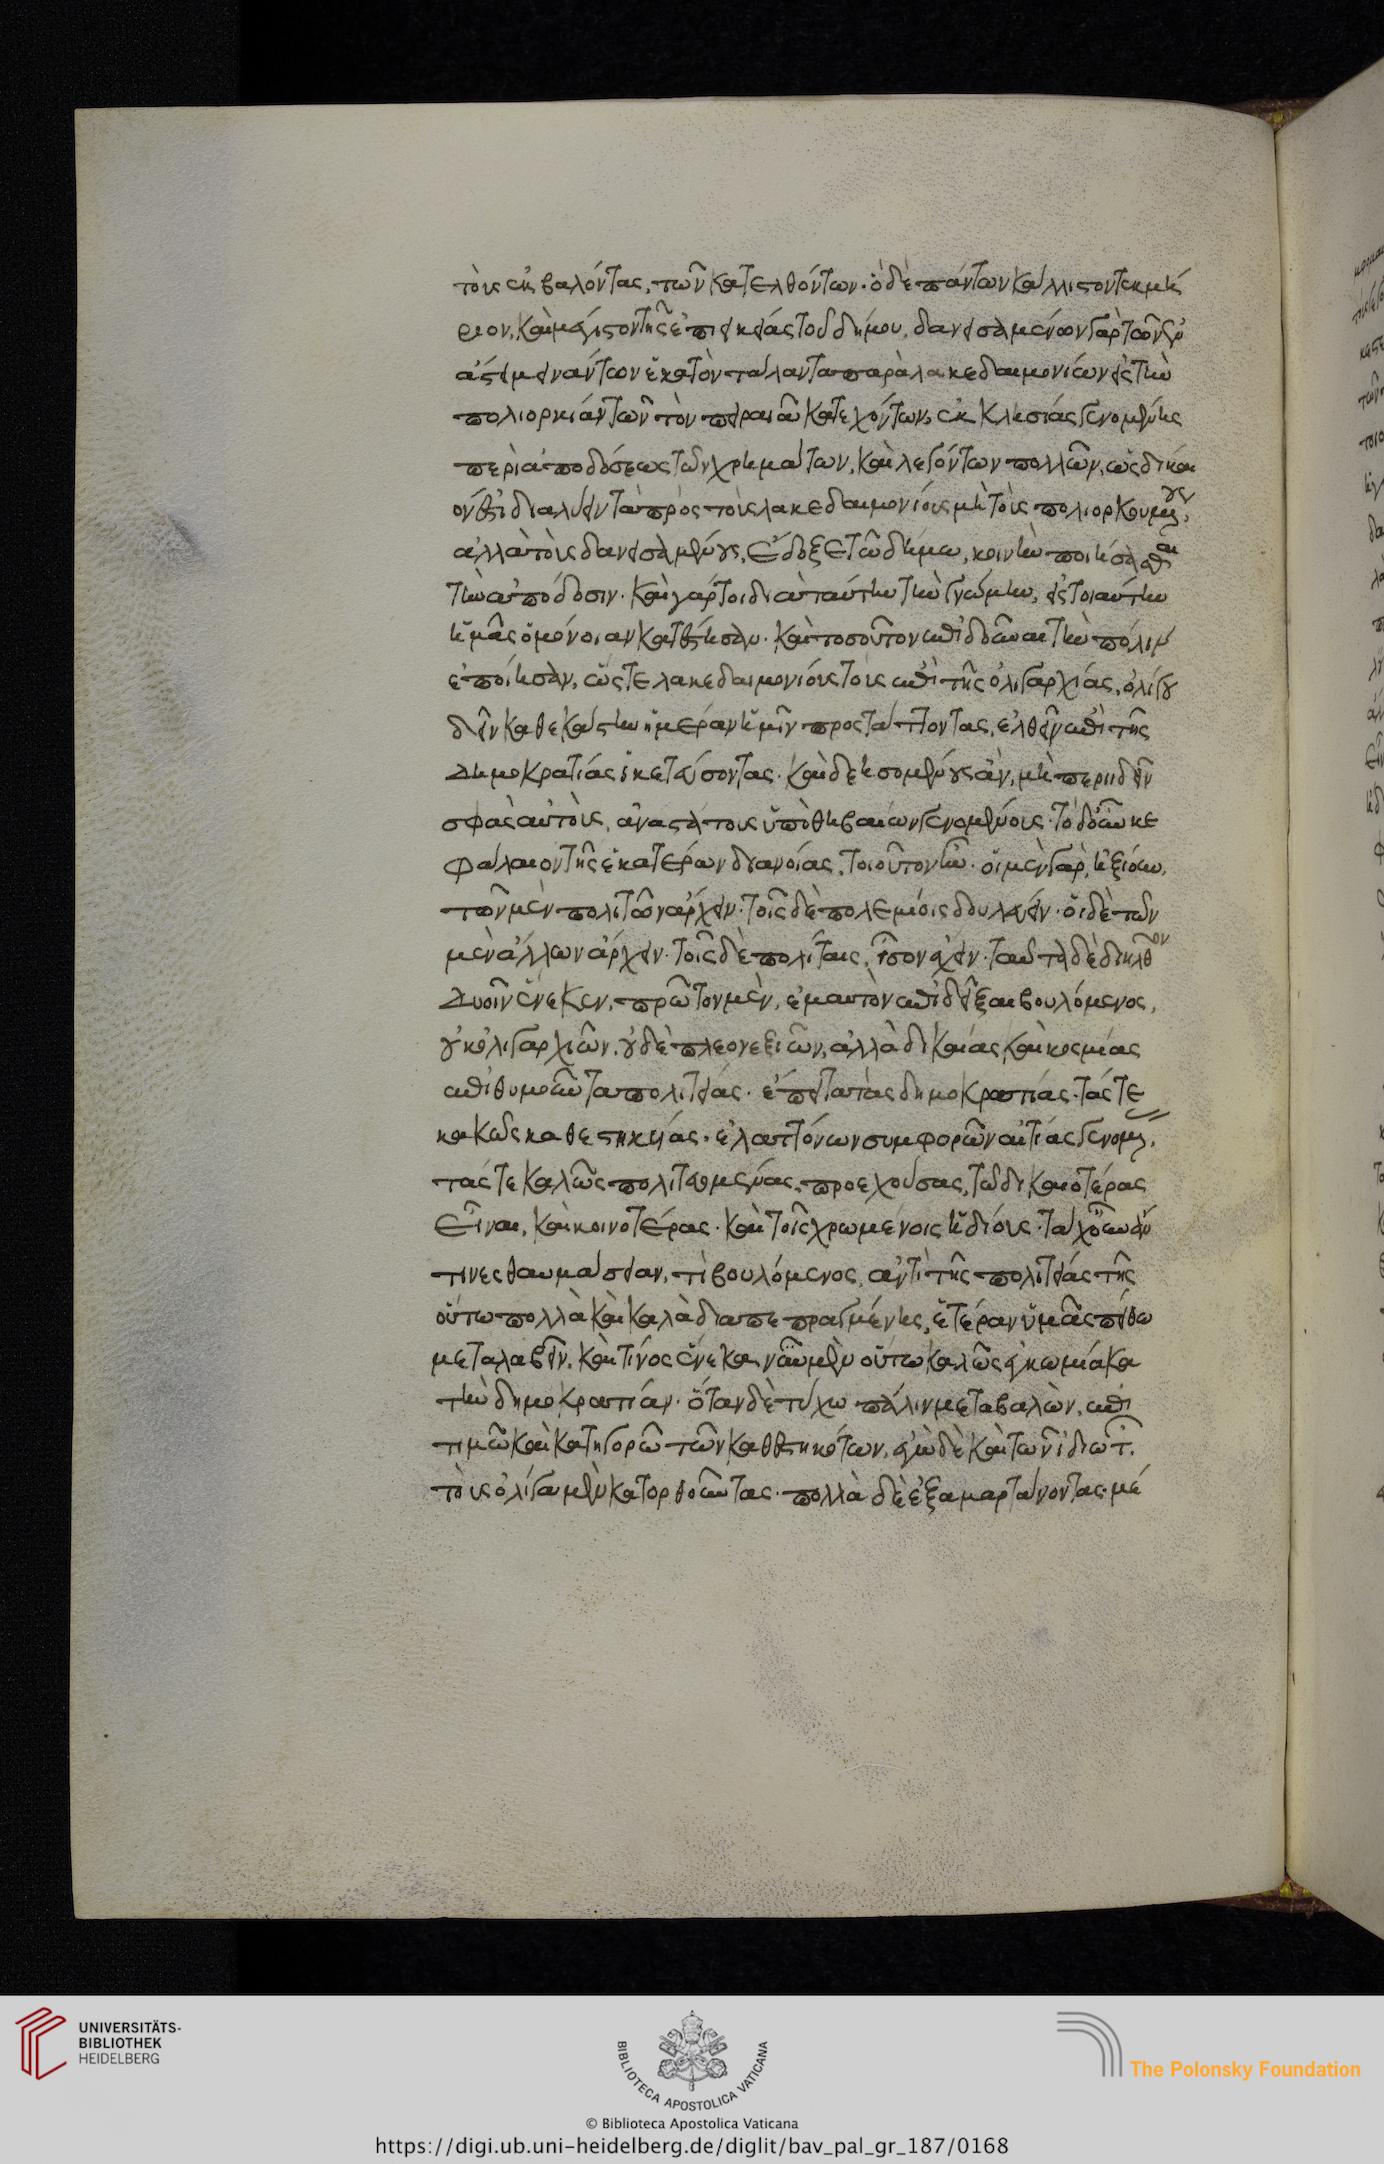 τοὺς ἐκβαλόντας, τῶν κατελθόντων. ὃ δὲ πάντων κάλλιστον τεκμή
ριον, καὶ μέγιστον τῆς ἐπιεικείας τοῦ δήμου, δανεισαμένων γὰρ τῶν ἐν
ἄστει μεινάντων ἑκατὸν τάλαντα παρὰ λακεδαιμονίων εἰς τὴν
πολιορκίαν τῶν τὸν πειραιᾶ κατεχόντων, ἐκκλησίας γενομένης
περὶ ἀποδόσεως τῶν χρημάτων, καὶ λεγόντων πολλῶν, ὡς δίκαι
όν ἐστι διαλύειν τὰ πρὸς τοὺς λακεδαιμονίους μὴ τοὺς πολιορκουμένους,
ἀλλὰ τοὺς δανεισαμένους, ἔδοξε τῷ δήμῳ, κοινὴν ποιήσασθαι
τὴν ἀπόδοσιν. καὶ γάρ τοι διὰ ταύτην τὴν γνώμην, εἰς τοιαύτην
ἡμᾶς ὁμόνοιαν κατέστησαν. καὶ τοσοῦτον ἐπιδοῦναι τὴν πόλιν
ἐποίησαν, ὥστε λακεδαιμονίους τοὺς ἐπὶ τῆς ὀλιγαρχίας, ὀλίγου
δεῖν καθεκάστην ἡμέραν ἡμῖν προστάττοντας, ἐλθεῖν ἐπὶ τῆς
δημοκρατίας ἱκετεύσοντας. καὶ δεησομένους ἂν, μὴ περιιδεῖν
σφᾶς αὐτοὺς, ἀναστάτους ὑπὸ θηβαίων γενομένους. τὸ δ' οὖν κε
φάλαιον τῆς ἑκατέρων διανοίας, τοιοῦτον ἦν. οἱ μὲν γὰρ, ἠξίουν,
τῶν μὲν πολιτῶν ἄρχειν. τοῖς δὲ πολεμίοις δουλεύειν. οἱ δὲ τῶν
μὲν ἄλλων ἄρχειν. τοῖς δὲ πολίταις, ἴσον ἔχειν. ταῦτα δὲ διῆλθον
δυοῖν ἕνεκεν, πρῶτον μὲν, ἐμαυτὸν ἐπιδεῖξαι βουλόμενος,
οὐκ ὀλιγαρχιῶν, οὐδὲ πλεονεξιῶν, ἀλλὰ δικαίας καὶ κοσμίας
ἐπιθυμοῦντα πολιτείας. ἔπειτα τὰς δημοκρατίας. τάς τε
κακῶς καθεστηκυίας. ἐλαττόνων συμφορῶν αἰτίας γενομέν.
τάς τε καλῶς πολιτευομένας, προεχούσας, τῷ δικαιοτέρας
εἶναι, καὶ κοινοτέρας. καὶ τοῖς χρωμένοις ἡδίους. τάχ' οὖν ἄν
τινες θαυμάσειαν, τί βουλόμενος, ἀντὶ τῆς πολιτείας τῆς
οὕτω πολλὰ καὶ καλὰ διαπεπραγμένης, ἑτέραν ὑμᾶς πείθω
μεταλαβεῖν, καὶ τίνος ἕνεκα, νῦν μὲν οὕτω καλῶς ἐγκωμίακα
τὴν δημοκρατίαν. ὅταν δὲ τύχω πάλιν μεταβαλὼν, ἐπι
τιμῶ καὶ κατηγορῶ τῶν καθεστηκότων. ἐγὼ δὲ καὶ τῶν ἰδιωτ.
τοὺς ὀλίγα μὲν κατορθοῦντας. πολλὰ δὲ ἐξαμαρτάνοντας. μέ
UNIVERSITÄTS-
BIBLIOTHEK
HEIDELBERG
BIBLIOTECA APOSTOLICA VATICANA
The Polonsky Foundation
© Biblioteca Apostolica Vaticana
https://digi.ub.uni-heidelberg.de/diglit/bav_pal_gr_187/0168